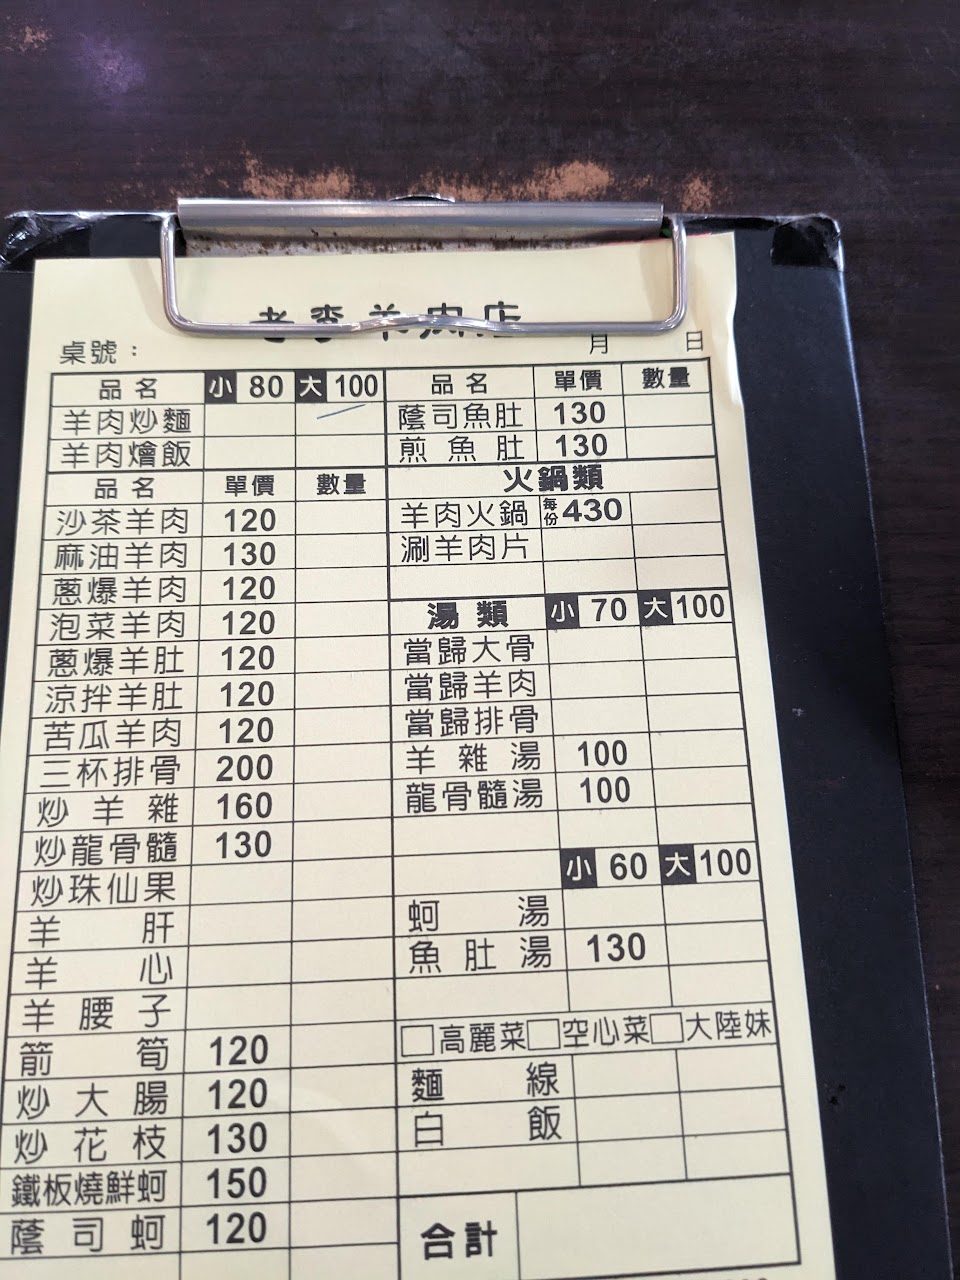 老李羊肉店
桌號：
月 日
品名 小 80 大 100
羊肉炒麵
羊肉燴飯
品名 單價 數量
沙茶羊肉 120
麻油羊肉 130
蔥爆羊肉 120
泡菜羊肉 120
蔥爆羊肚 120
涼拌羊肚 120
苦瓜羊肉 120
三杯排骨 200
炒羊雜 160
炒龍骨髓 130
炒珠仙果
羊肝
羊心
羊腰子
箭筍 120
炒大腸 120
炒花枝 130
鐵板燒鮮蚵 150
蔭司蚵 120
品名 單價 數量
蔭司魚肚 130
煎魚肚 130
火鍋類
羊肉火鍋 每份430
涮羊肉片
湯類 小 70 大 100
當歸大骨
當歸羊肉
當歸排骨
羊雜湯 100
龍骨髓湯 100
小 60 大 100
蚵湯
魚肚湯 130
□高麗菜□空心菜□大陸妹
麵線
白飯
合計